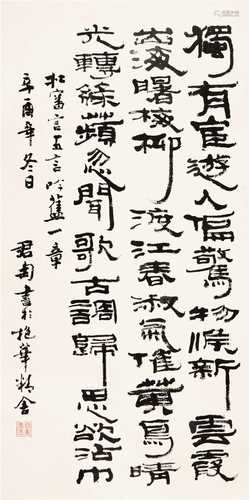 獨有宦遊人偏驚物候新雲霞
出海曙梅柳渡江春淑氣催黃鳥晴
光轉綠蘋忽聞歌古調歸思欲沾巾
杜審言五言吟舊一章
辛酉年冬日 君匋書於抱華精舍